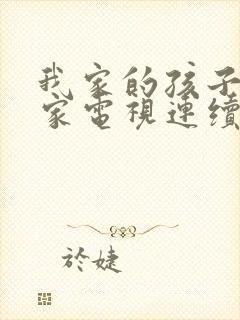 我家的孩子
家電視連續
於婕